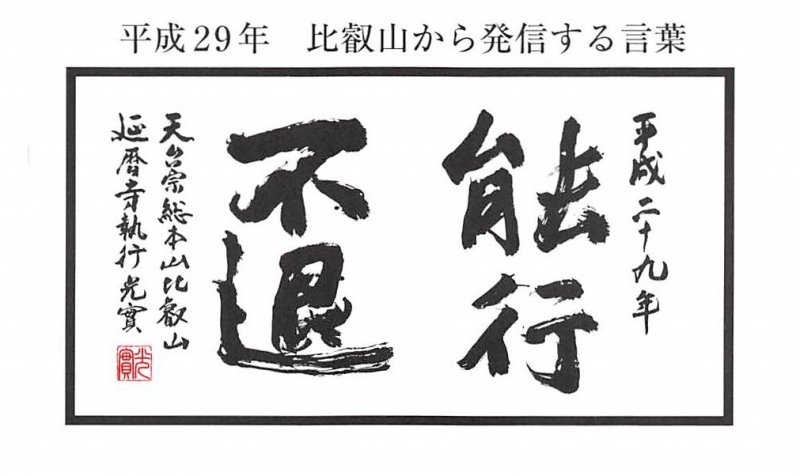 平成29年 比叡山から発信する言葉
平成二十九年
能行
不退
天台宗総本山比叡山
延暦寺執行光實
光實